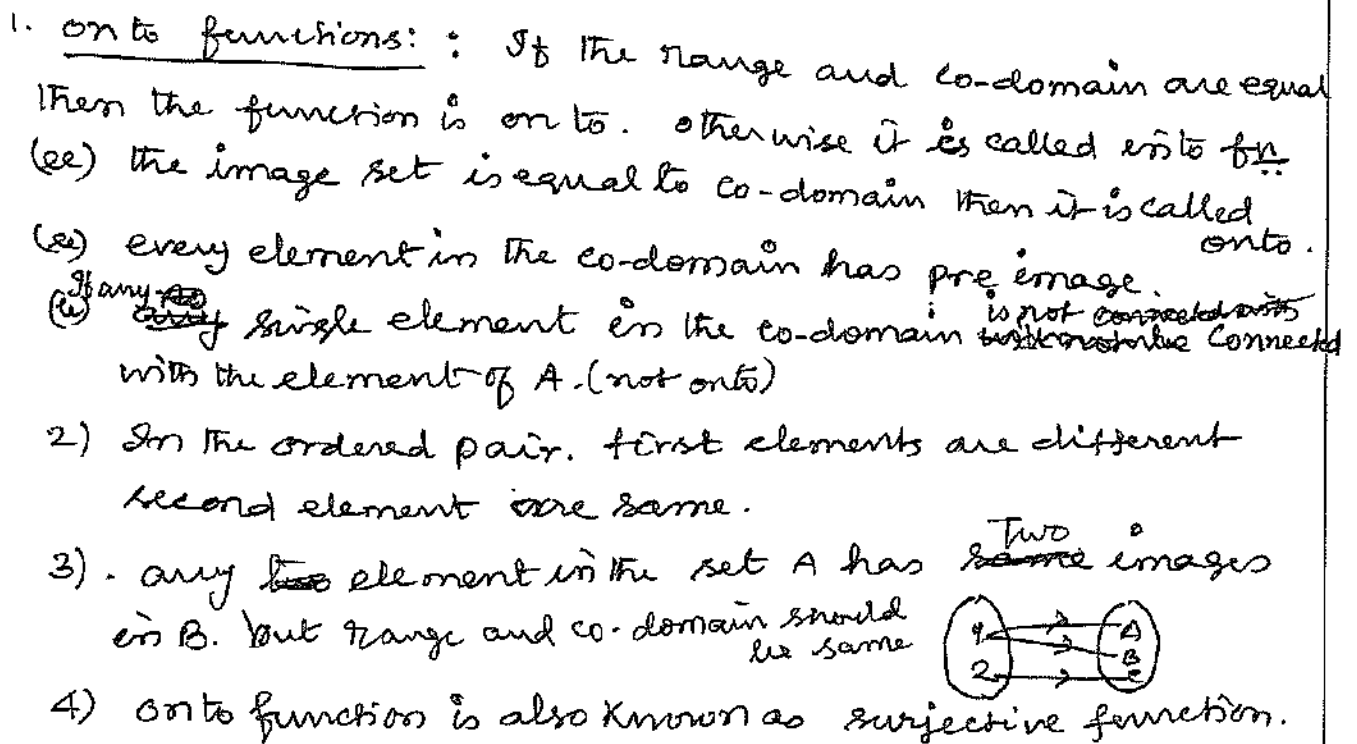 1. onto functions: : If the range and co-domain are equal
then the function is onto. otherwise it is called into fn.
(ee) the image set is equal to co-domain then it is called
onto.
(ee) every element in the co-domain has pre image.
If any
is not
single element in the co-domain Connected
with the element of A. (not onto)
2) In the ordered pair. first elements are different
second element are same.
3). any element in the set A has Two images
in B. but range and co-domain should
be same
A
B
2 C
4) onto function is also known as surjective function.